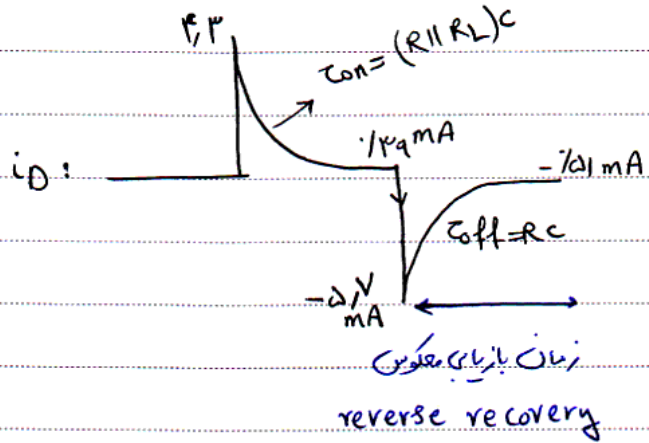 ۴,۳
τon = (R||RL)C
iD :
٪۳۹ mA
-٪۵۱ mA
τoff = RC
-۵,۷
mA
زمان بازیابی معکوس
reverse recovery